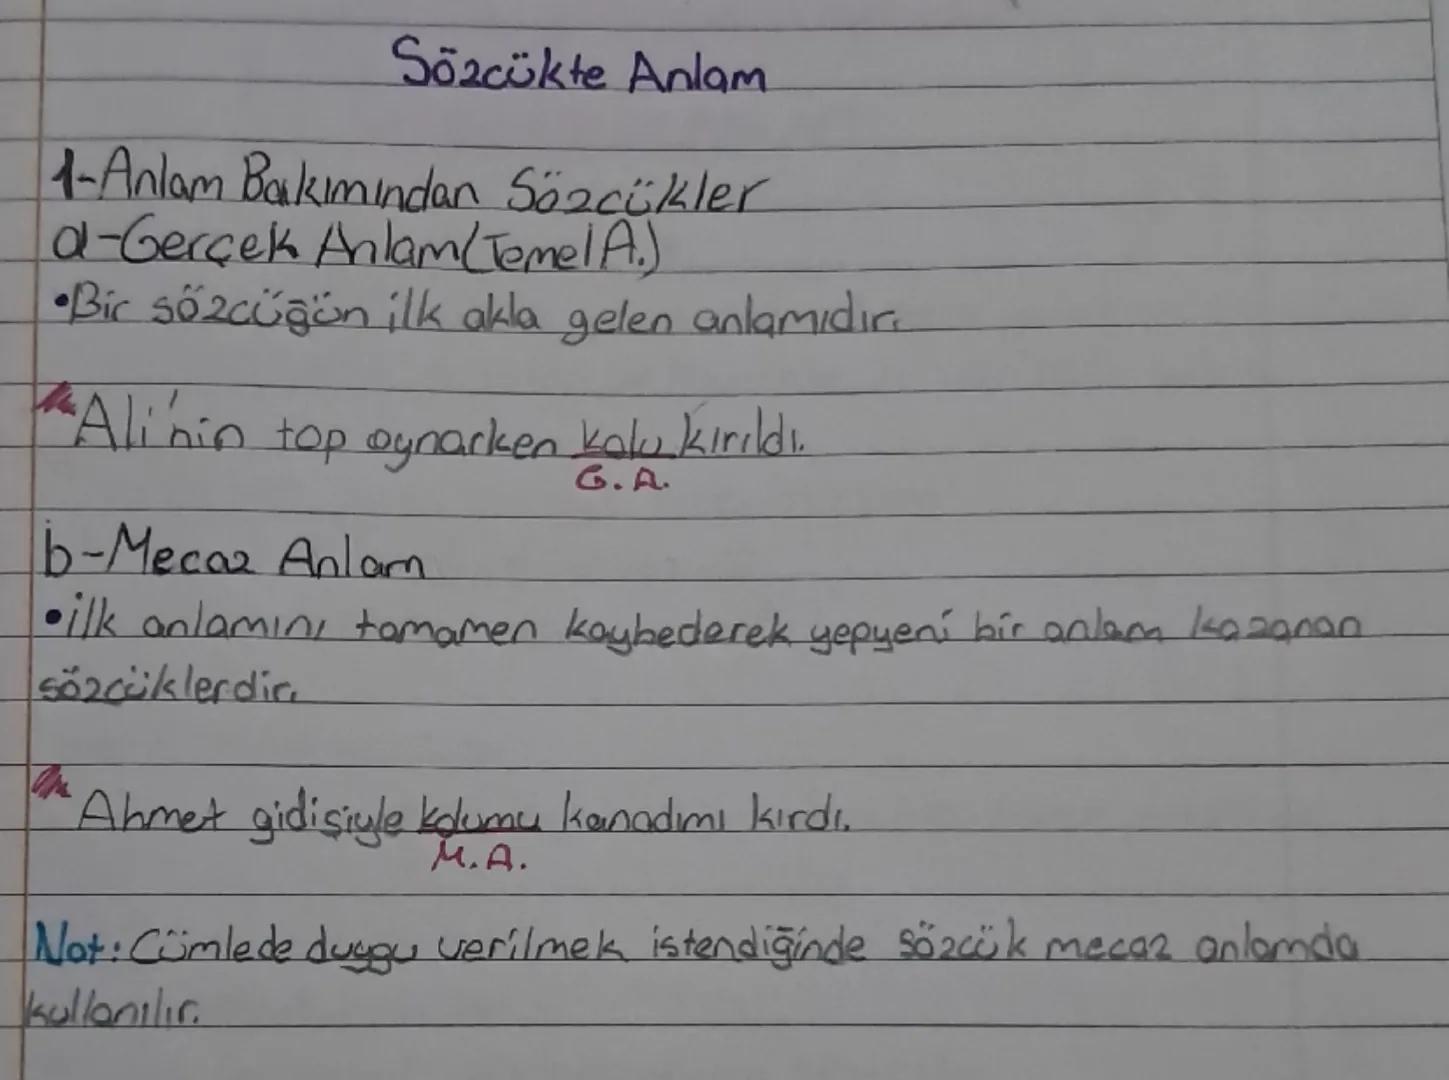 Sözcükte Anlam
1-Anlam Bakımından Sözcükler
a-Gerçek Anlam(Temel A.)
•Bir sözcüğün ilk akla gelen anlamıdır.
Ali'nin top oynarken kolu kırıldı.
G.A.
b-Mecaz Anlam
•ilk anlamını tamamen kaybederek yepyeni bir anlam kazanan
sözcüklerdir.
Ahmet gidişiyle kolumu kanadımı kırdı.
M.A.
Not: Cümlede duygu verilmek istendiğinde sözcük mecaz anlamda
kullanılır.